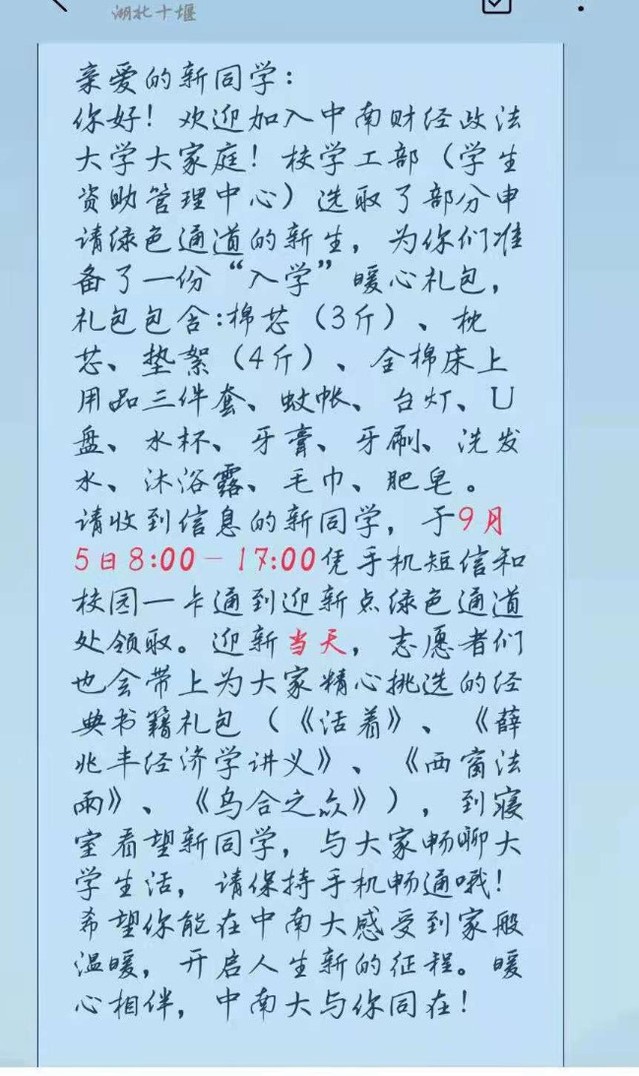 湖北十堰
亲爱的新同学：
你好！欢迎加入中南财经政法
大学大家庭！校学工部（学生
资助管理中心）选取了部分申
请绿色通道的新生，为你们准
备了一份“入学”暖心礼包，
礼包包含:棉芯（3斤）、枕
芯、垫絮（4斤）、全棉床上
用品三件套、蚊帐、台灯、U
盘、水杯、牙膏、牙刷、洗发
水、沐浴露、毛巾、肥皂。
请收到信息的新同学，于9月
5日8:00－17:00凭手机短信和
校园一卡通到迎新点绿色通道
处领取。迎新当天，志愿者们
也会带上为大家精心挑选的经
典书籍礼包（《活着》、《薛
兆丰经济学讲义》、《西窗法
雨》、《乌合之众》），到寝
室看望新同学，与大家畅聊大
学生活，请保持手机畅通哦！
希望你能在中南大感受到家般
温暖，开启人生新的征程。暖
心相伴，中南大与你同在！